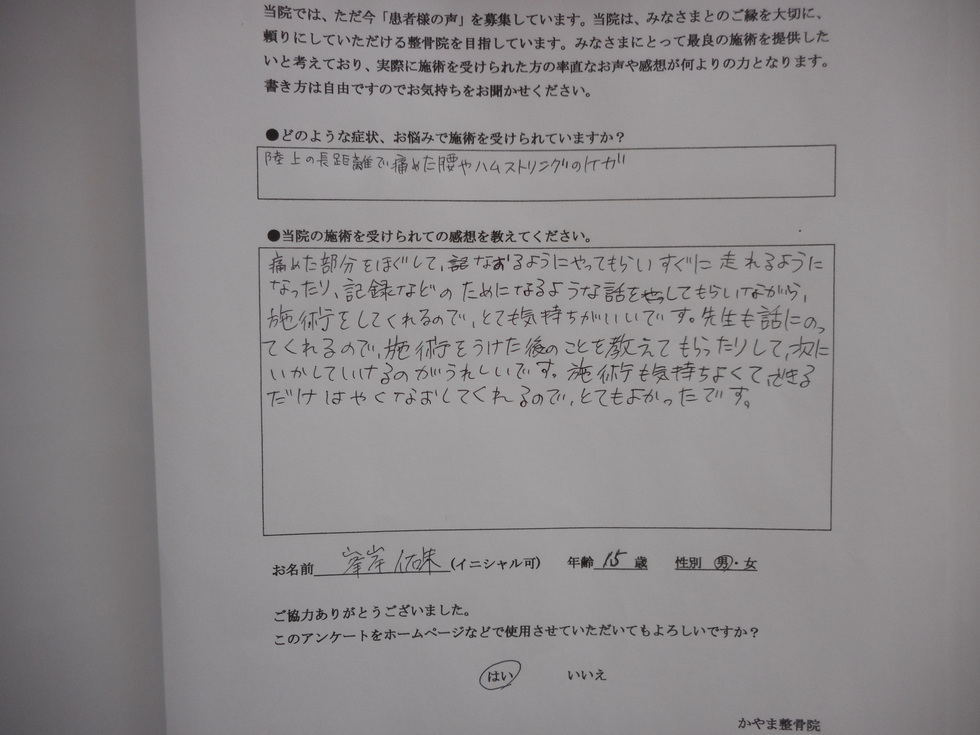 当院では、ただ今「患者様の声」を募集しています。当院は、みなさまとのご縁を大切に、
頼りにしていただける整骨院を目指しています。みなさまにとって最良の施術を提供した
いと考えており、実際に施術を受けられた方の率直なお声や感想が何よりの力となります。
書き方は自由ですのでお気持ちをお聞かせください。
●どのような症状、お悩みで施術を受けられていますか？
陸上の長距離で痛めた腰やハムストリングのケガ
●当院の施術を受けられての感想を教えてください。
痛めた部分をほぐして、なおるようにやってもらいすぐに走れるように
なったり、記録などのためになるような話をしてもらいながら、
施術をしてくれるので、とても気持ちがいいです。先生も話にのっ
てくれるので、施術をうけた後のことを教えてもらったりして、次に
いかしていけるのがうれしいです。施術も気持ちよくて、できる
だけはやくなおしてくれるので、とてもよかったです。
お名前 (イニシャル可) 年齢 15 歳 性別 男・女
ご協力ありがとうございました。
このアンケートをホームページなどで使用させていただいてもよろしいですか？
はい いいえ
かやま整骨院